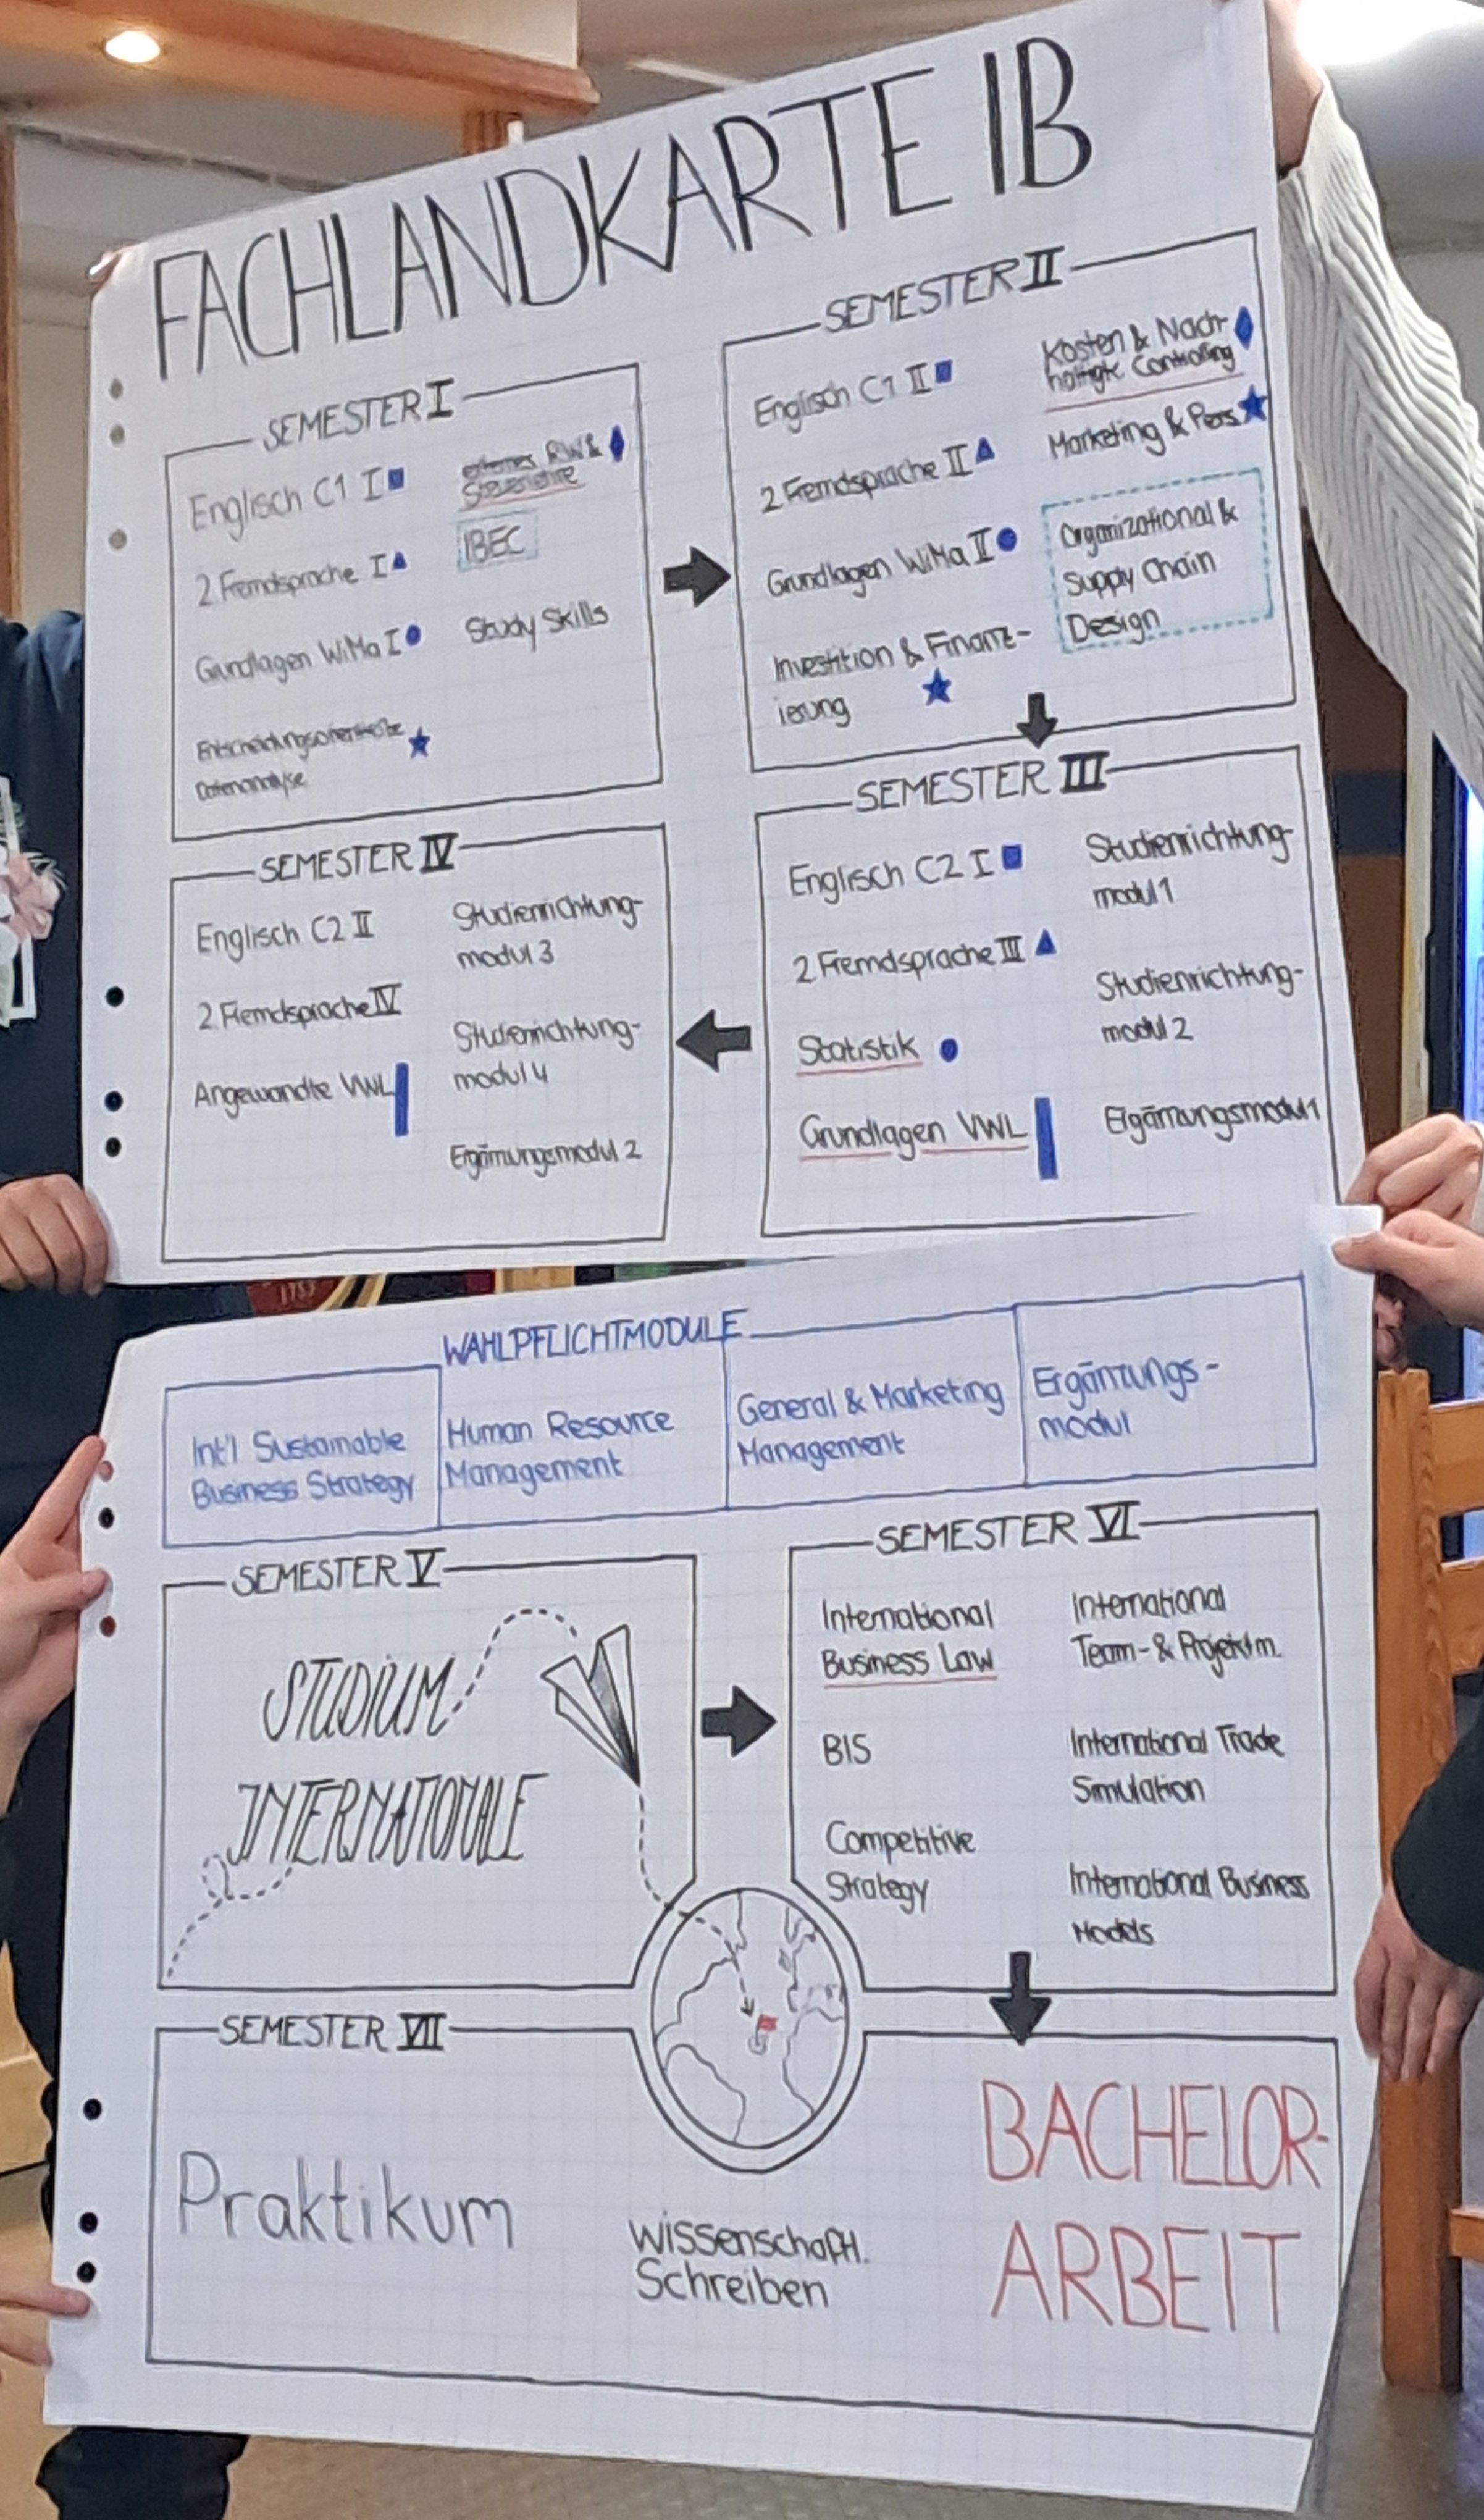 FACHLANDKARTE IB
SEMESTER I
Englisch C1 I
2 Fremdsprache I
Grundlagen WiMa I
Entscheidungsorientierte
Datenanalyse
externes RW &
Steuerlehre
IBEC
Study Skills
SEMESTER II
Englisch C1 II
2 Fremdsprache II
Grundlagen WiMa II
Investition & Finanz-
ierung
Kosten & Nach-
haltigk. Controlling
Marketing & Pers.
Organizational &
Supply Chain
Design
SEMESTER III
Englisch C2 I
2 Fremdsprache III
Statistik
Grundlagen VWL
Studienrichtung-
modul 1
Studienrichtung-
modul 2
Ergänzungsmodul 1
SEMESTER IV
Englisch C2 II
2 Fremdsprache IV
Angewandte VWL
Studienrichtung-
modul 3
Studienrichtung-
modul 4
Ergänzungsmodul 2
WAHLPFLICHTMODULE
Int'l Sustainable
Business Strategy
Human Resource
Management
General & Marketing
Management
Ergänzungs-
modul
SEMESTER V
STUDIUM
INTERNATIONALE
SEMESTER VI
International
Business Law
BIS
Competitive
Strategy
International
Team- & Projektm.
International Trade
Simulation
International Business
Models
SEMESTER VII
Praktikum
Wissenschaftl.
Schreiben
BACHELOR-
ARBEIT